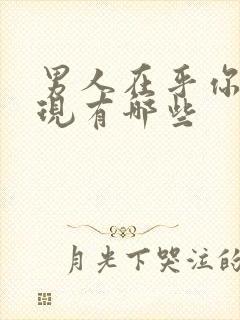 男人在乎你
現有哪些
月光下哭泣的